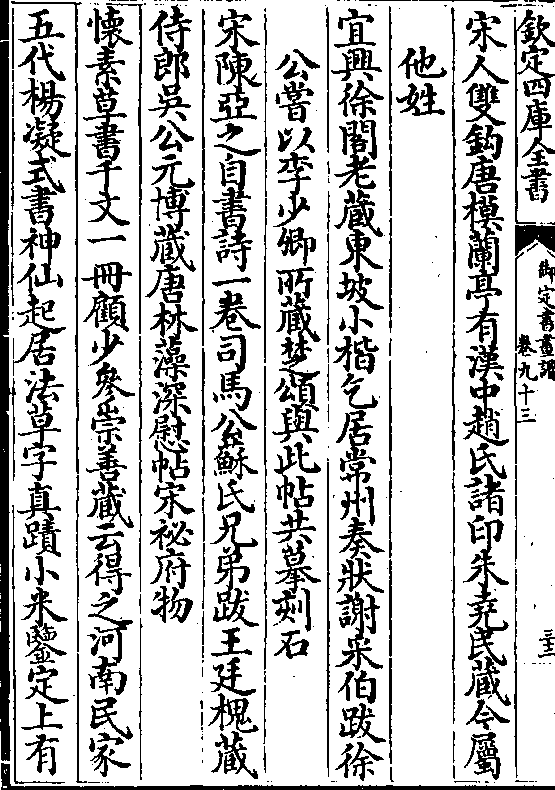 欽定四庫全書
御定書畫譜
卷九十三
三
宋人雙鈎唐模蘭亭有漢中趙氏諸印朱堯民藏今屬
他姓
宜興徐閣老藏東坡小楷乞居常州奏狀謝采伯跋徐
公嘗以李少卿所藏楚頌與此帖共摹刻石
宋陳亞之自書詩一卷司馬公蘇氏兄弟跋王廷槐藏
侍郎吳公元博藏唐林藻深慰帖宋祕府物
懷素草書千文一冊顧少參崇善藏云得之河南民家
五代楊凝式書神仙起居法草字真蹟小米鑒定上有